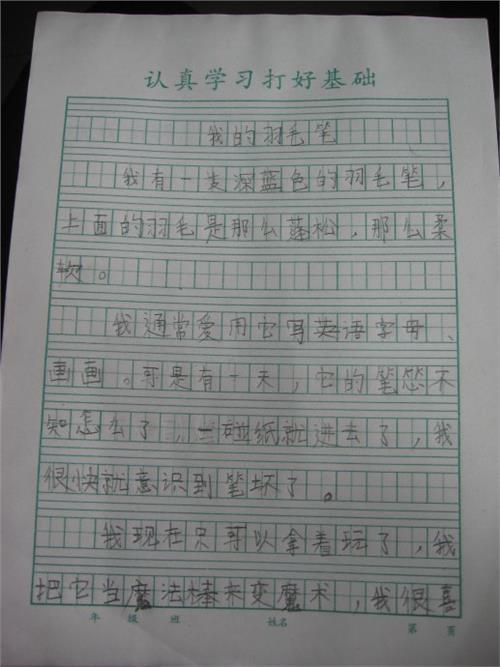 认真学习打好基础
我的羽毛笔
我有一支深蓝色的羽毛笔，
上面的羽毛是那么蓬松，那么柔
软。
我通常爱用它写英语字母、
画画。可是有一天，它的笔怂不
知怎么了，一碰纸就进去了，我
很快就意识到笔坏了。
我现在只可以拿着坛了，我
把它当魔法棒来变魔术，我很喜
年 级 班 姓名 第 页